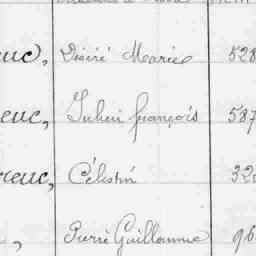 euc, Désiré Marie 528
euc, Julien françois 587
euc, Célestin 32
, Pierre Guillaume 96